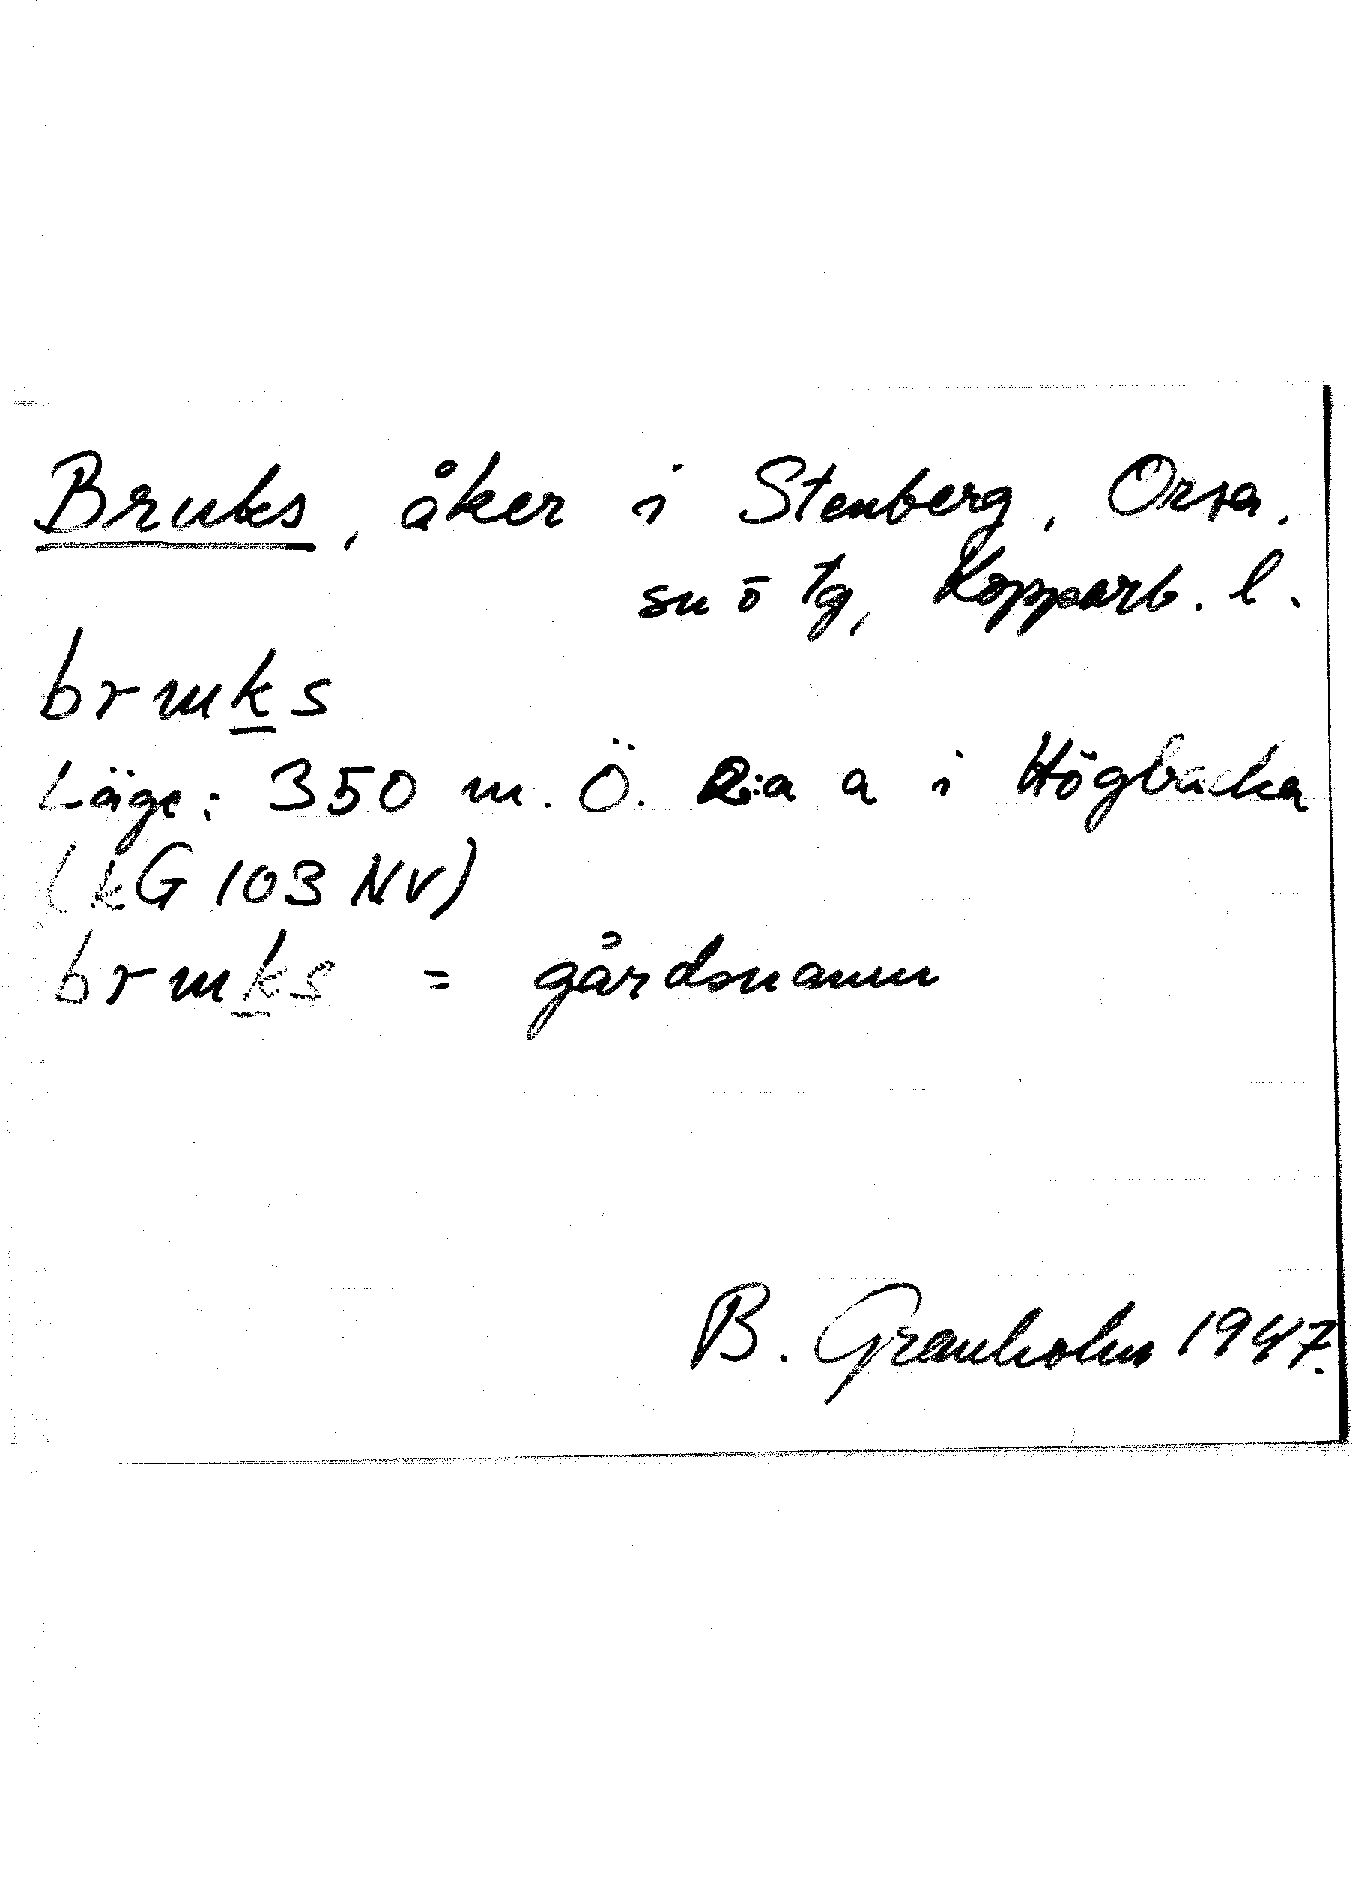 Bruks, åker i Stenberg, Orsa.
sn o tg, Kopparb. l.
bruks
Läge: 350 m. Ö. R:a a i Högbacka
(kG 103 NV)
bruks = gårdsnamn
B. Granholm 1947.